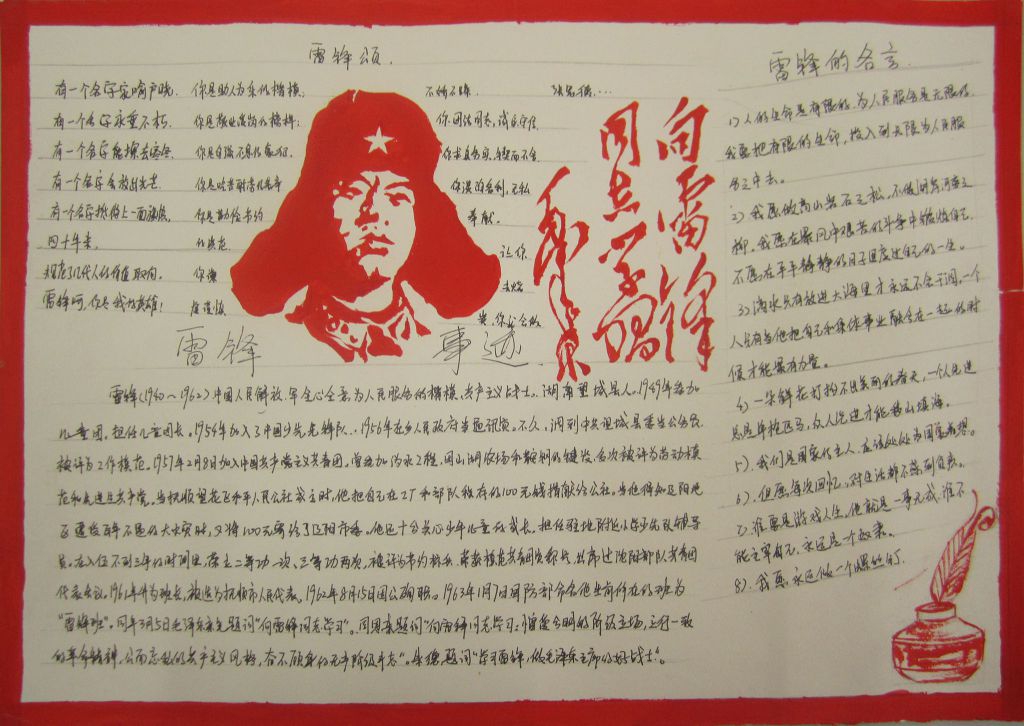 雷锋颂
有一个名字家喻户晓.
有一个名字永垂不朽.
有一个名字能摆去
有一个名字会放出光芒
有一个名字就像上一面旗帜.
四十年来,
规范了几代人的价值取向.
雷锋啊,你是我们的英雄!
你是助人为乐的楷模,
你是敬业
你是自强不息的象征.
你是
你是勤俭节约
的典范
你谦
虚谨慎
不骄不躁
你团结同志,诚实守信,
你求真务实,锲而不舍.
你淡泊名利,无私
奉献.
让你
向雷锋
同志学习
毛泽东
雷锋 事迹
雷锋(1940～1962)中国人民解放军全心全意为人民服务的楷模、共产主义战士。湖南望城县人。1949年参加
儿童团,担任儿童团长。1954年加入了中国少先队.1956年在乡人民政府当通讯员。不久,调到中共望城县委当公务员
被评为工作模范。1957年2月8日加入中国共产主义共青团。曾参加沩水工程、团山湖农场和鞍钢的建设,多次被评为劳动模
范和先进生产者。当抚顺望花区和平人民公社成立时,他把自己在工厂和部队积存的100元钱捐献给公社。当他得知辽阳地
区遭受百年不遇的大水灾时,又将100元寄给了辽阳市委。他还十分关心少年儿童的成长。担任驻地附近小学少先队辅导
员。在入伍不到三年的时间里,荣立二等功一次、三等功两次,被评为节约标兵,荣获模范共青团员称号,出席过沈阳部队共青团
代表会议。1961年升为班长,被选为抚顺市人民代表。1962年8月15日因公殉职。1963年1月7日国防部命名他生前所在的班为
“雷锋班”。同年3月5日毛泽东亲笔题词“向雷锋同志学习”。周恩来题词“向雷锋同志学习:憎爱分明的阶级立场,言行一致
的革命精神,公而忘私的共产主义风格,奋不顾身的无产阶级斗志”。朱德题词“学习雷锋,做毛泽东主席的好战士”。
雷锋的名言
1)人的生命是有限的.为人民服务是无限的.
我要把有限的生命,投入到无限为人民服
务之中去。
2)我愿做高山岩石之松,不做湖岸河畔之
柳.我愿在暴风中艰苦的斗争中锻炼自己.
不愿在平平静静的日子里度过自己的一生。
3)滴水只有放进大海里才永远不会干涸,一个
人只有当他把自己和集体事业融合在一起的时
候才能最有力量。
4)一朵鲜花打扮不出美丽的春天,一个人先进
总是单枪匹马,众人先进才能移山填海。
5)。我们是国家的主人,应该处处为国家着想。
6)。但愿每次回忆,对生活都不感到负疚。
7)谁要是游戏人生,他就是一事无成,谁不
能主宰自己,永远是一个奴隶。
8)。我愿永远做一个螺丝钉.